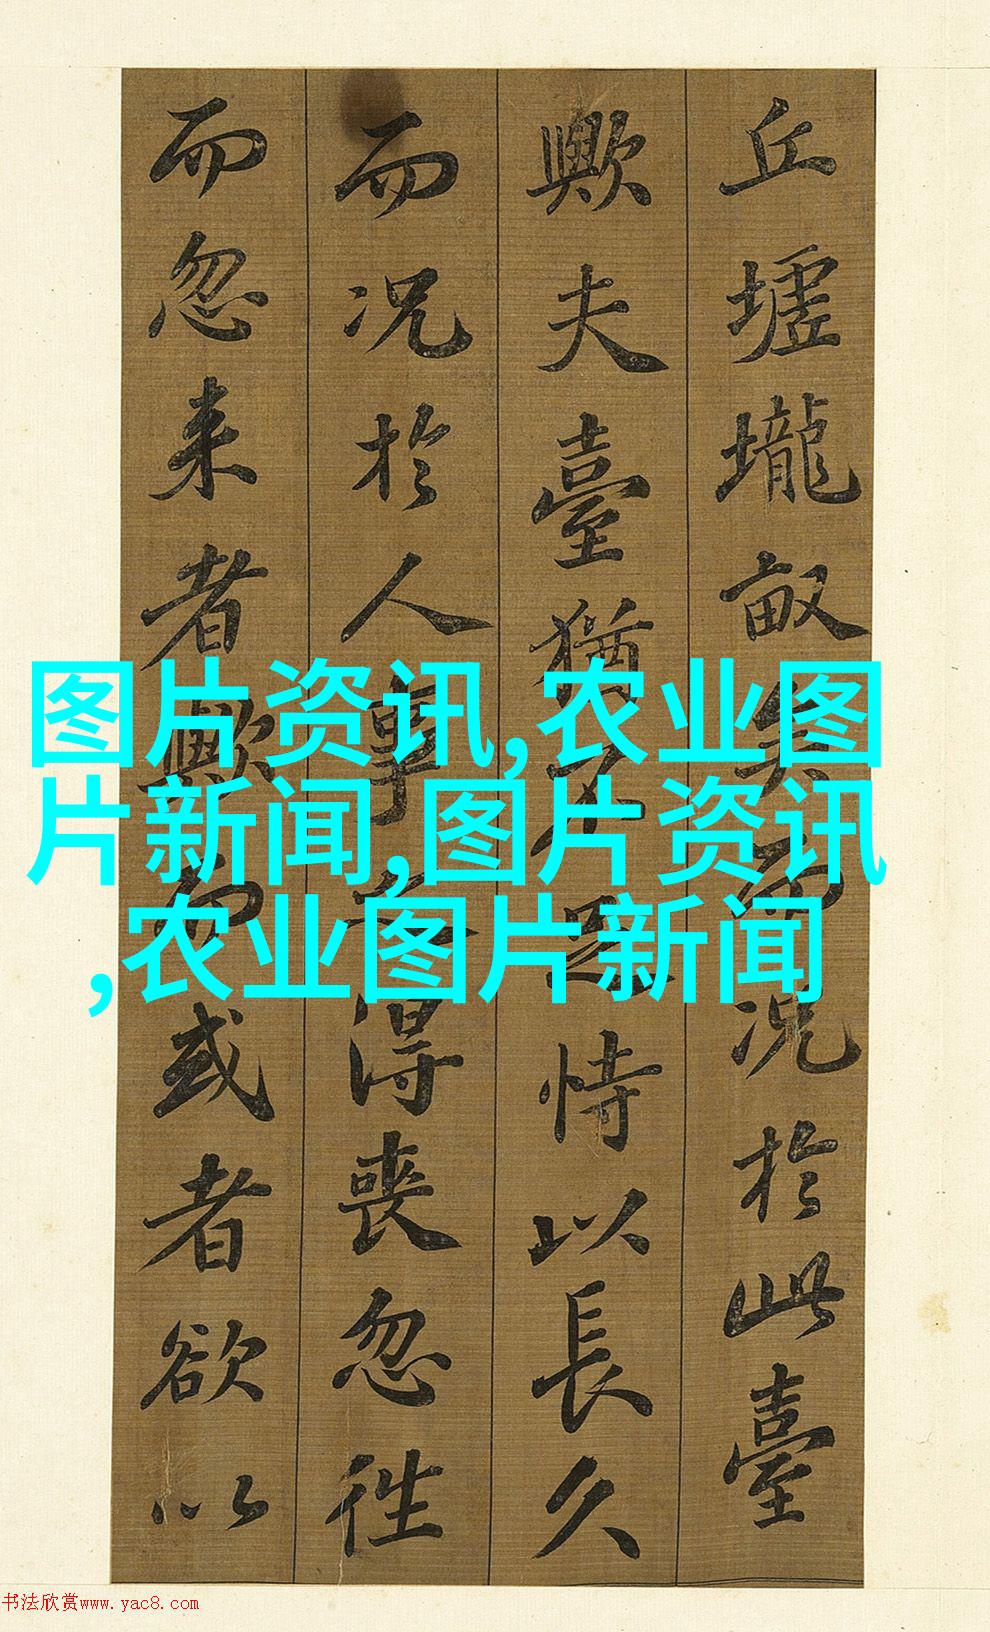 丘墟壠畝矣而况於此臺
歟夫臺猶不足恃以長久
而况於人事之得喪忽往
而忽来者歟而或者欲以
图片资讯,农业图
片新闻,图片资讯
,农业图片新闻
书法欣赏www.yac8.com